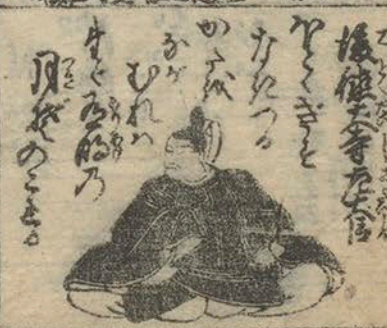 後徳大寺左大臣
ほとゝぎす
なきつる
かたを
なが
むれハ
たゞ有明乃
月ぞのこれる